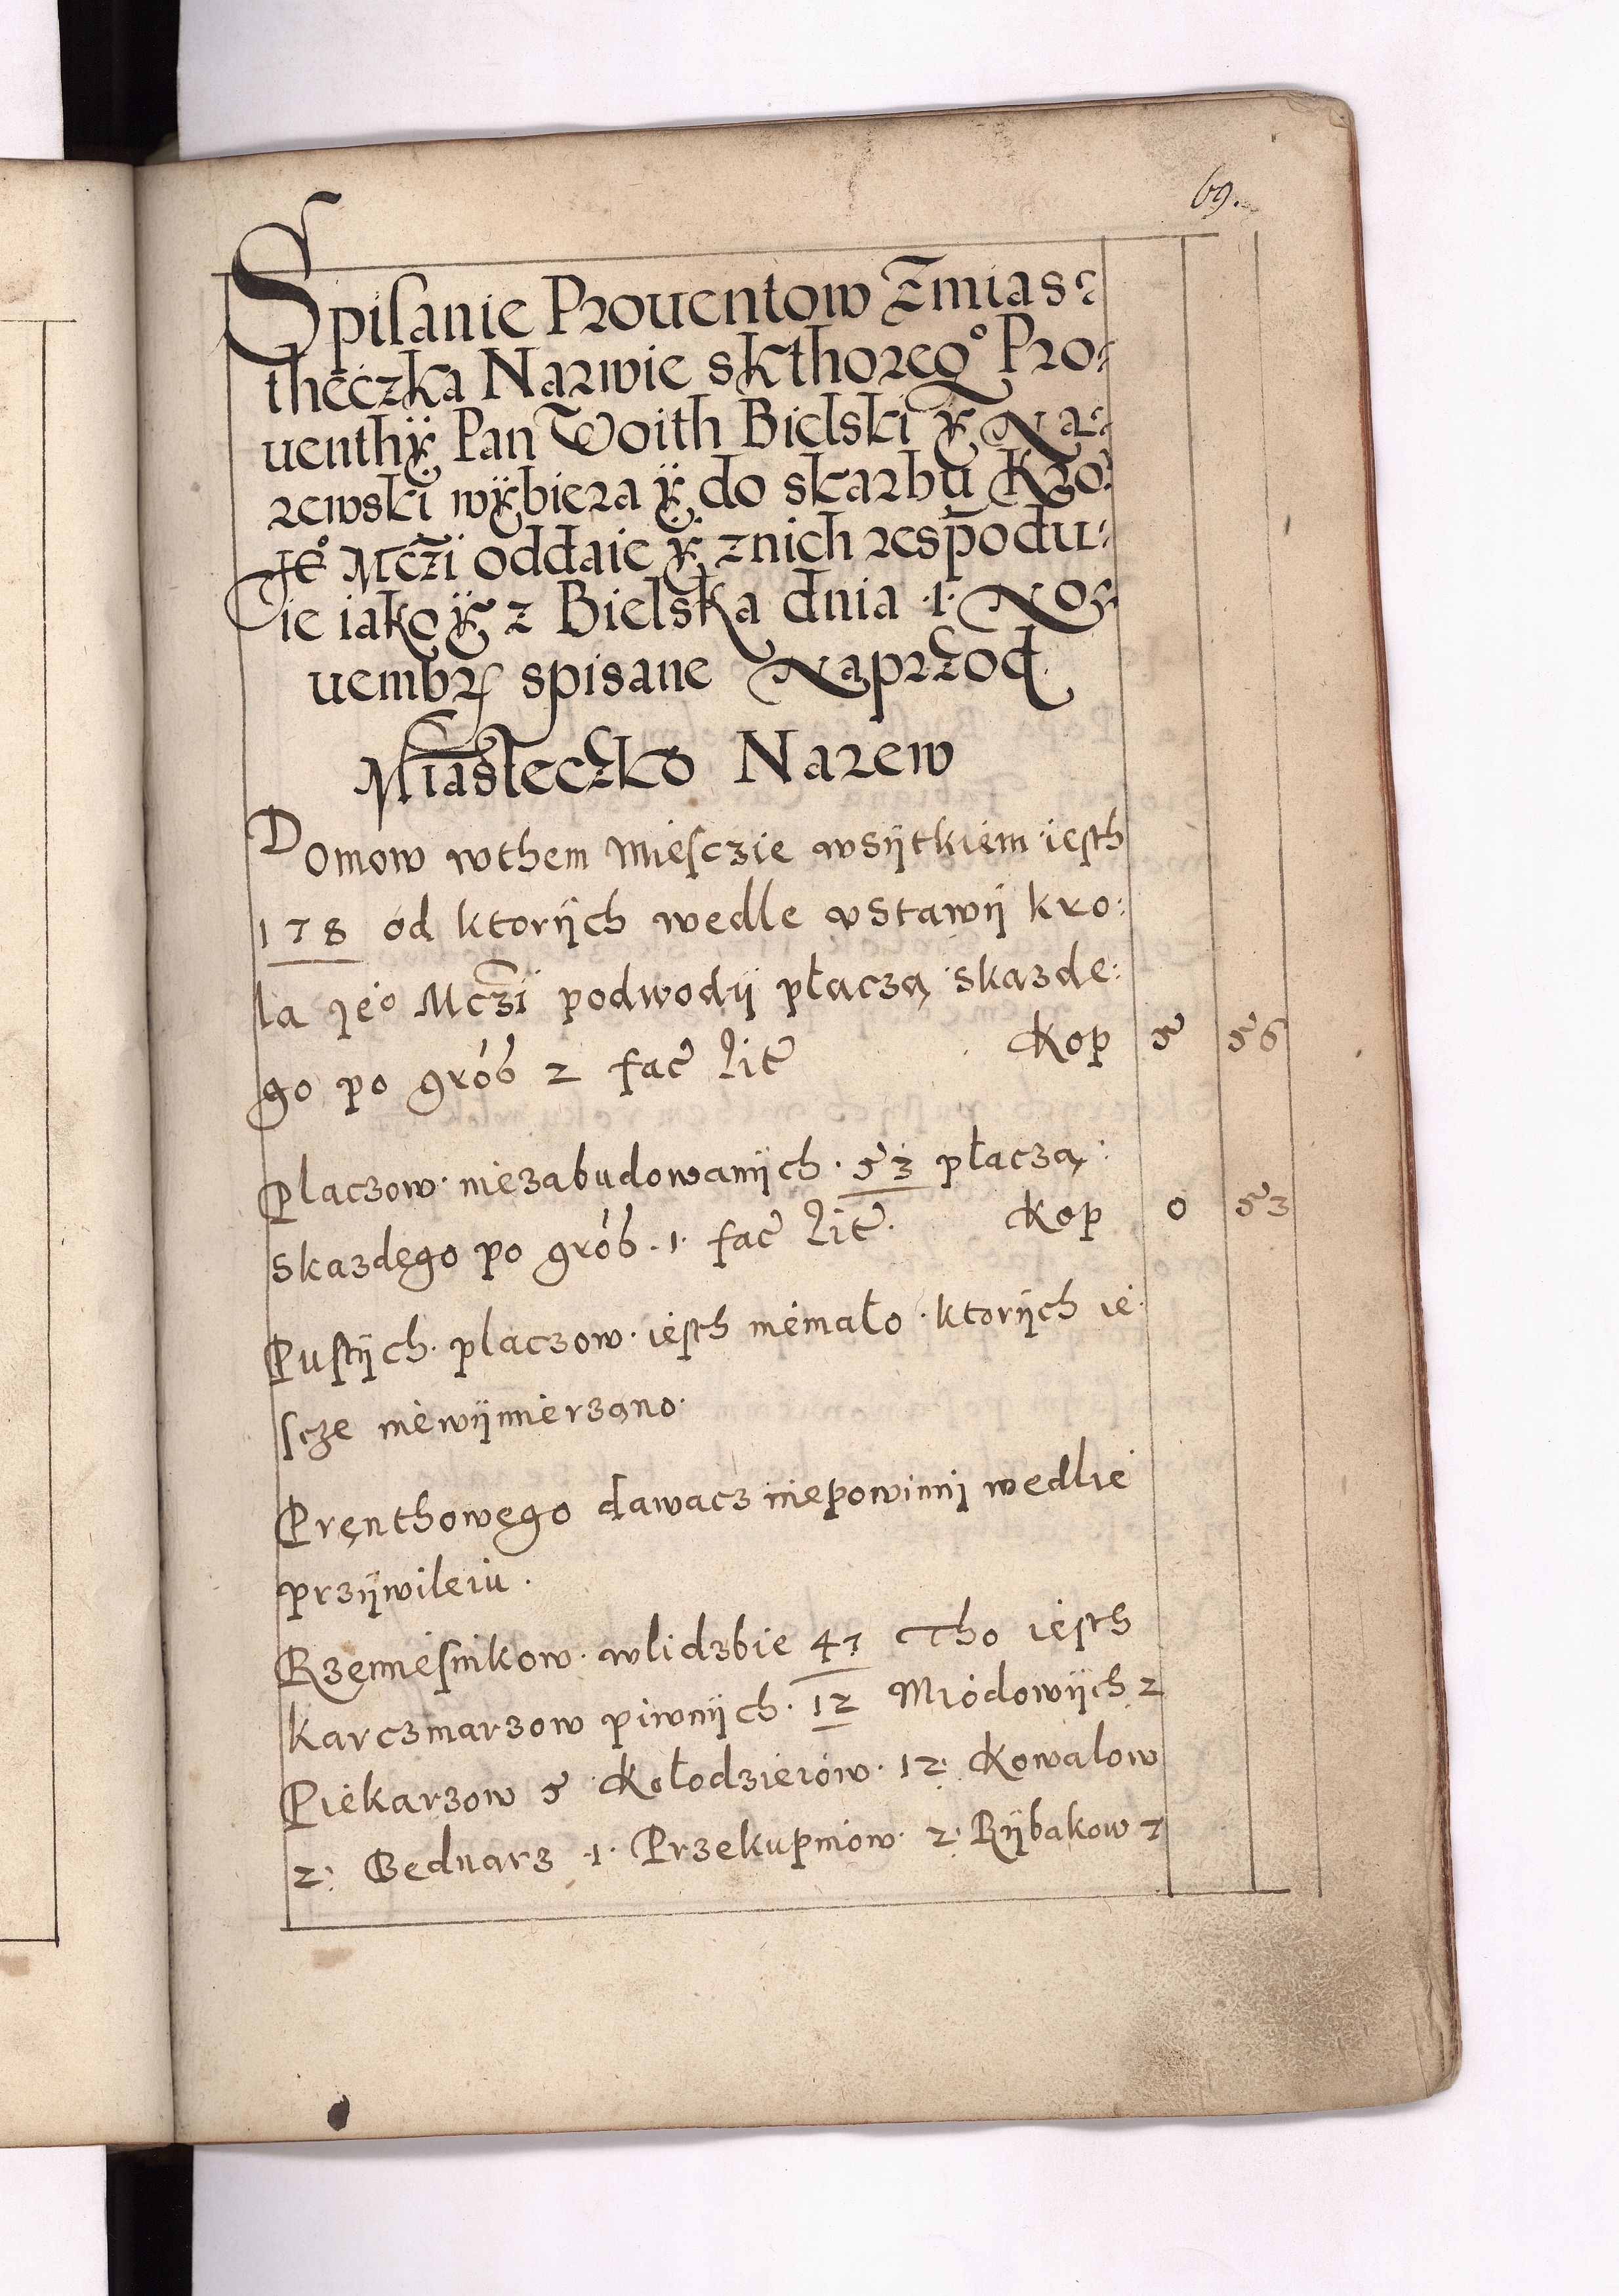 69.
Spisanie Prouentow Zmias-
theczka Narwie skthoreg° Pro-
uenthÿ Pan Woith Bielski ÿ Na-
rewski wÿbiera ÿ do skarbu Kro:
Je° Mczi oddaie ÿ znich respodu-
ie iako ÿ z Bielska dnia .1. No-
uembr spisane Naprzod
Miasteczko Narew
Domow wthem Miesczie wsÿtkiem iesth
178 od ktorÿch wedle vstawÿ kro:
la Je° Mczi podwodÿ płaczą skazde:
go po gróß 2 fac Lit Kop 5 56
Placzow niezabudowanÿch . 53 płaczą:
skazdego po gróß .1. fac Lit. Kop 0 53
Pustÿch placzow iesth niemało ktorÿch ie
scze niewÿmierzano.
Prenthowego dawacz niepowinni wedlie
przÿwileiu.
Rzemiesnikow wlidzbie 47 Tho iesth
karczmarzow piwnÿch. 12 Miodowÿch 2
Piekarzow 5 Kołodzieiów 12: Kowalow
2: Bednarz .1. Przekupniow 2: Rÿbakow 7